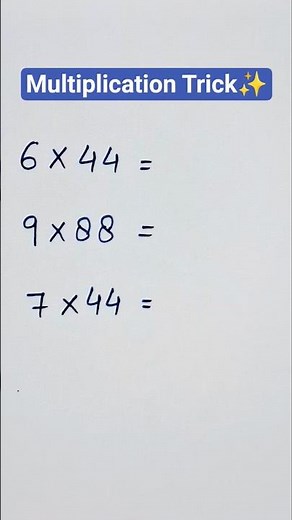 Multiplication Trick✨
6 × 44 =
9 × 88 =
7 × 44 =